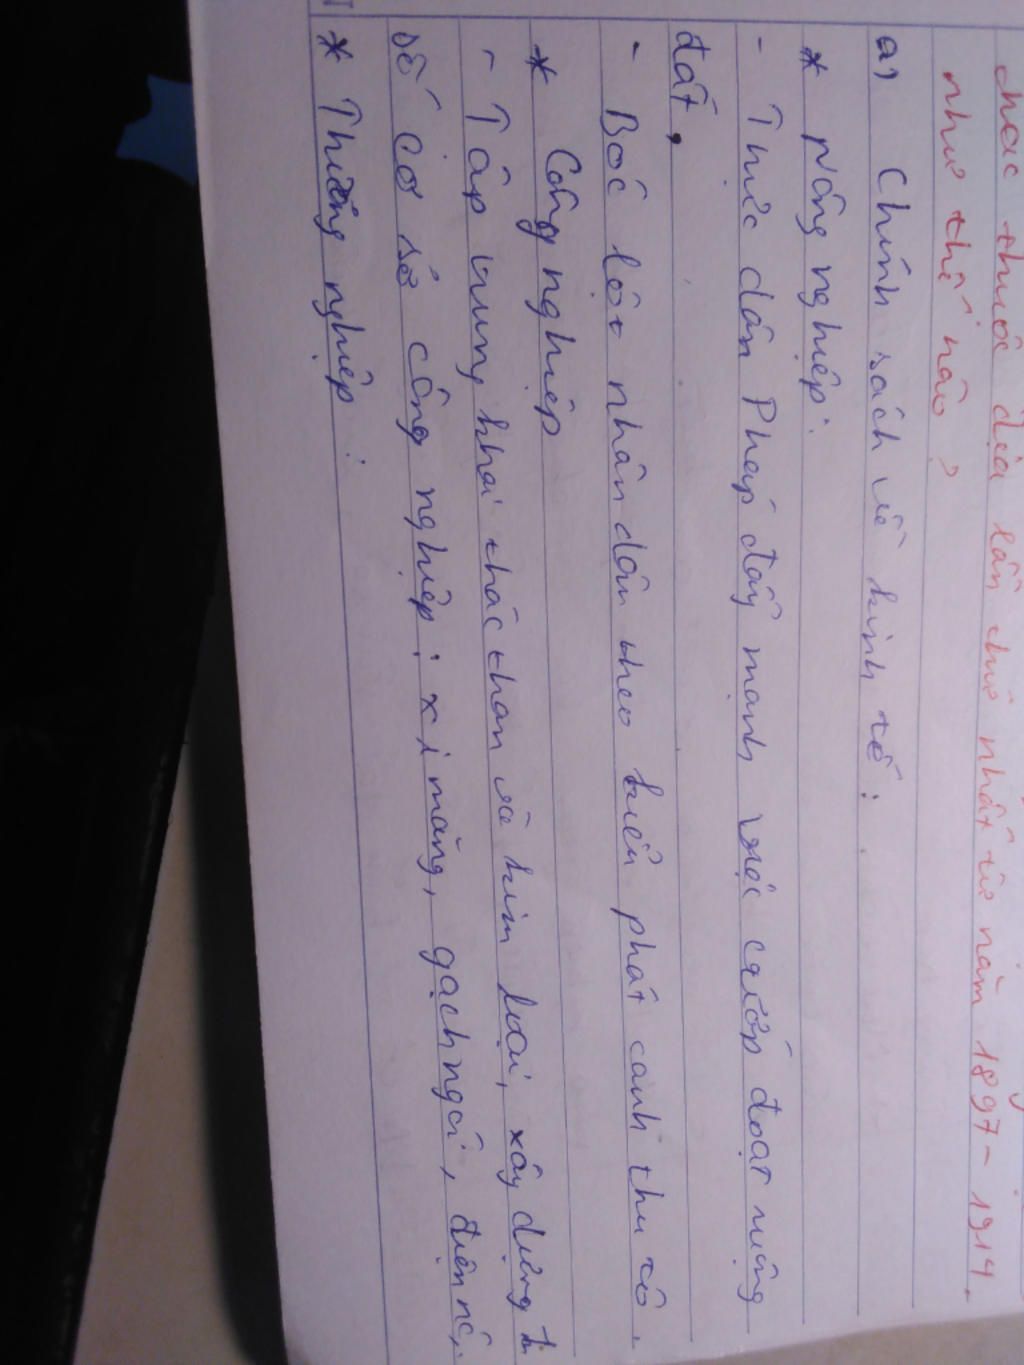 thác thuộc địa lần thứ nhất từ năm 1897 - 1914.
như thế nào?
a) Chính sách về kinh tế:
* Nông nghiệp:
- Thực dân Pháp đẩy mạnh việc cướp đoạt ruộng
đất.
- Bóc lột nhân dân theo kiểu phát canh thu tô.
* Công nghiệp
- Tập trung khai thác than và kim loại, xây dựng
số cơ sở công nghiệp: xi măng, gạch ngói, điện nước,
* Thương nghiệp: